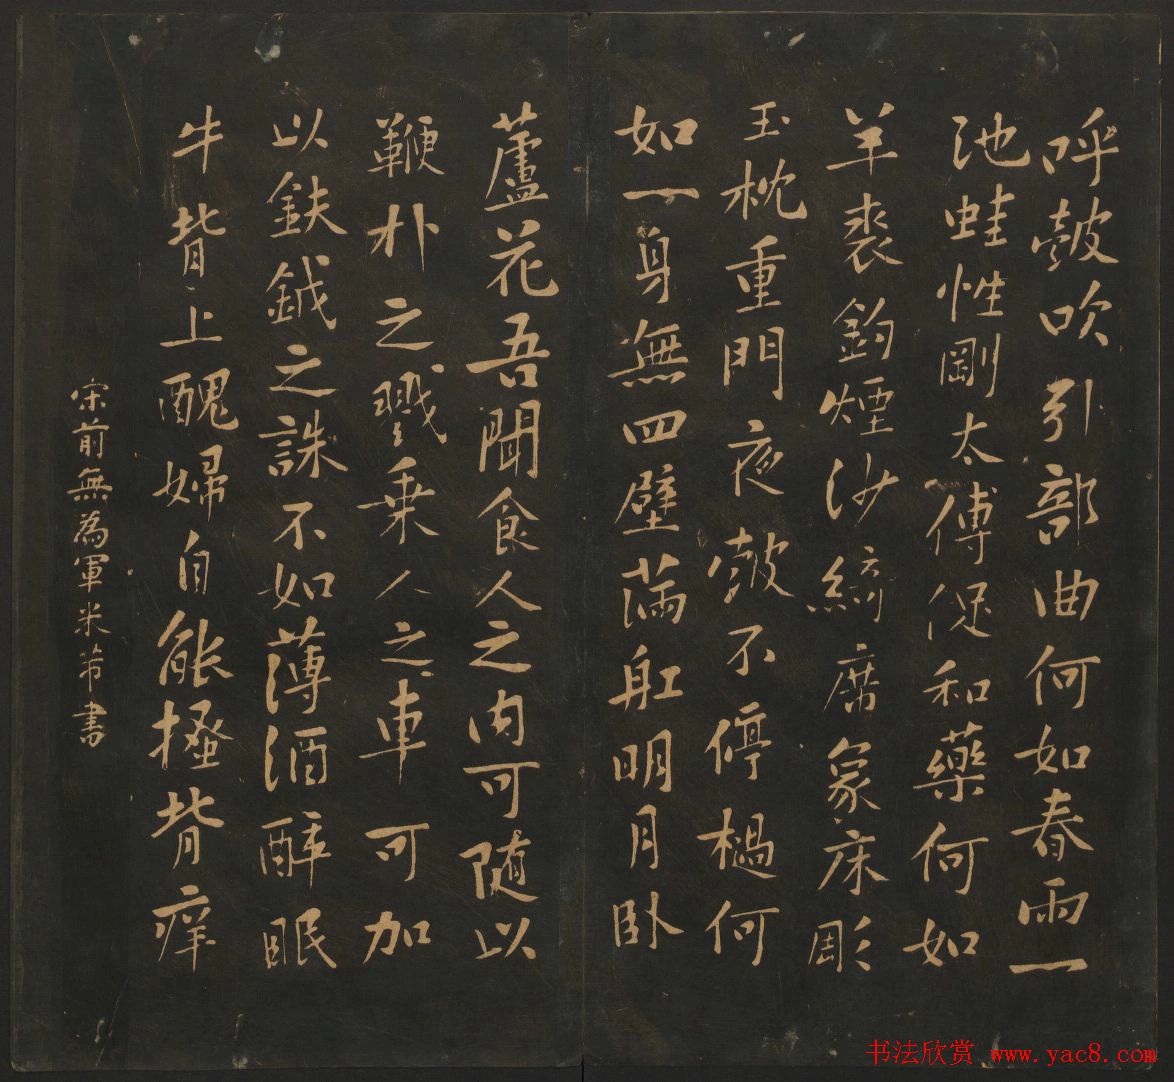 呼鼓吹引部曲何如春雨一
池蛙性剛太傅促和藥何如
羊裘釣煙沙綺席象床彫
玉枕重門夜鼓不停檛何
如一身無四壁滿舡明月卧
蘆花吾聞食人之肉可隨以
鞭朴之戮乗人之車可加
以鈇鉞之誅不如薄酒醉眠
牛背上醜婦自能搔背痒
宋前無為軍米芾書
书法欣赏 www.yac8.com